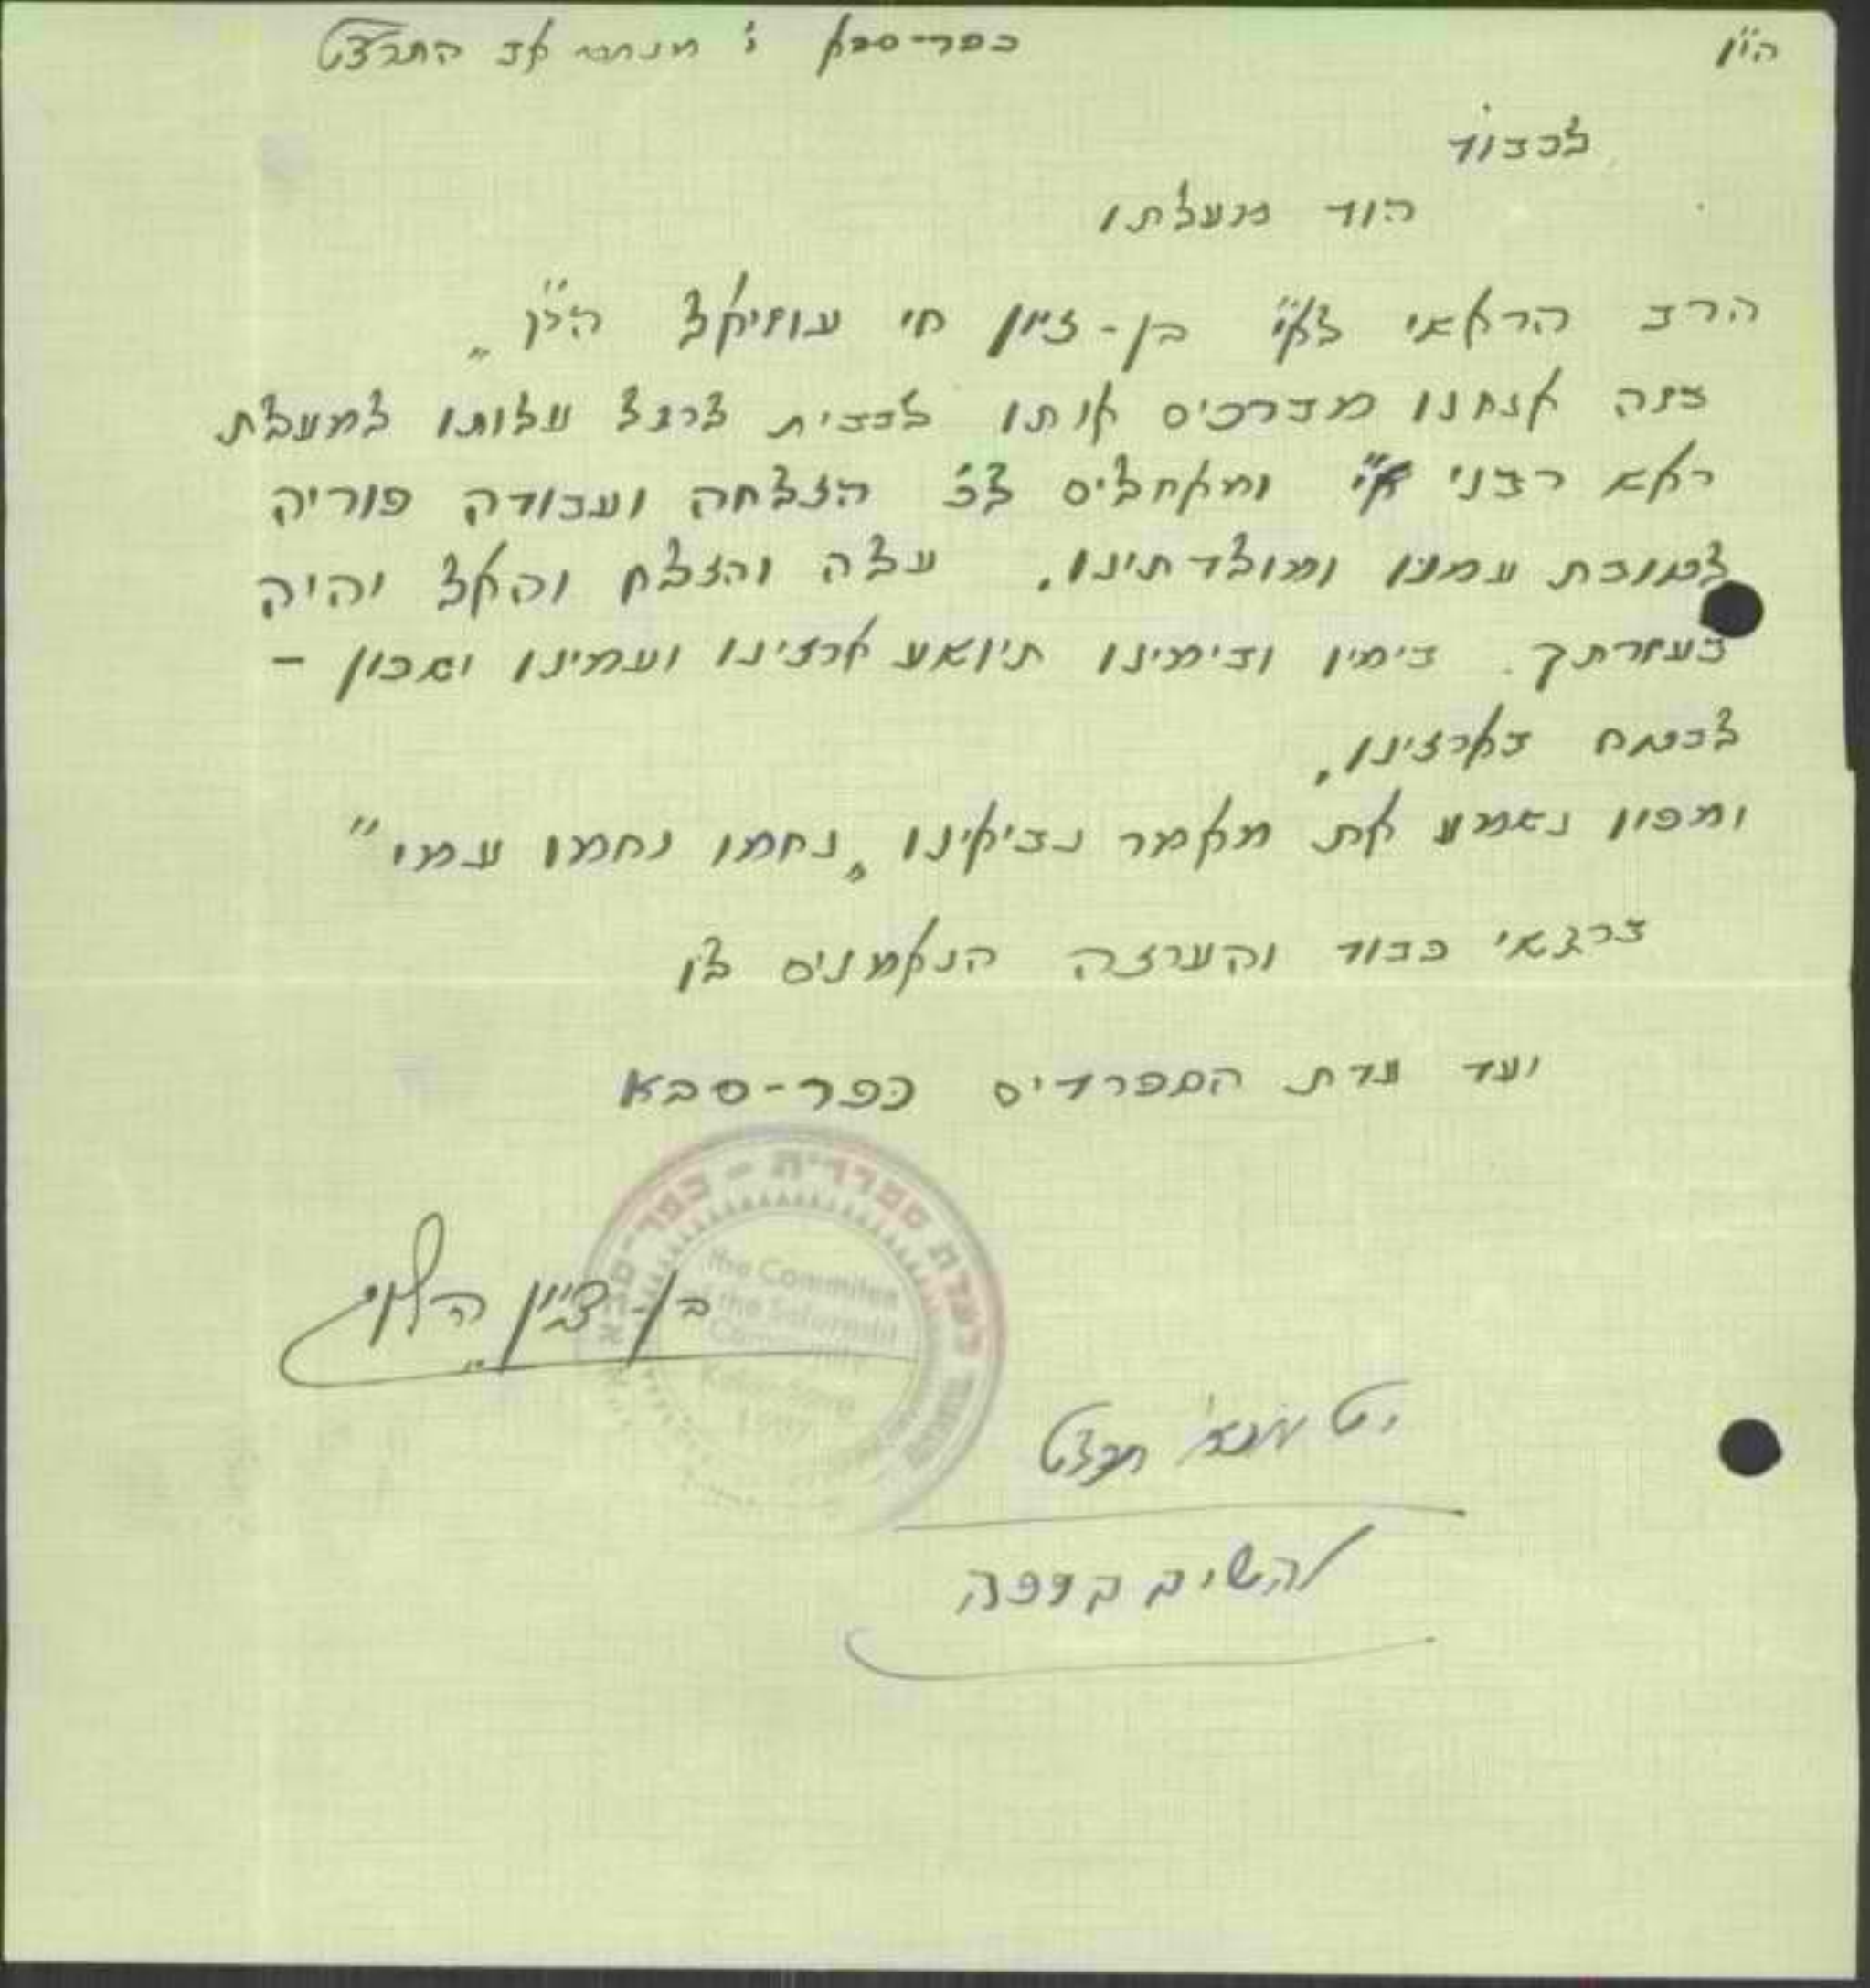 ה"ן
כפר-סבא ז' מנחם אב התרצ"ט
לכבוד
הוד מעלתו
הרב הראשי לא"י בן-ציון חי עוזיאל הי"ו
בזה אנחנו מברכים אותו לבבית לרגל עלותו למעלת
ראש רבני א"י ומאחלים לכ' הצלחה ועבודה פוריה
לטובת עמנו ומולדתינו. עלה והצלח והאל יהיה
בעזרתך. בימיו ובימינו תיושע ארצינו ועמינו ישכון -
לבטח בארצינו.
ומפיו נשמע את מאמר נביאינו "נחמו נחמו עמי"
ברגשי כבוד והערצה הנאמנים לו
ועד עדת הספרדים כפר-סבא
העדה ספרדית - כפר-סבא
the Commitee
the Sefaredit
Community
Kefar-Saba
בן-ציון הלוי
י"ט מנ"א תרצט
להשיב בדפה